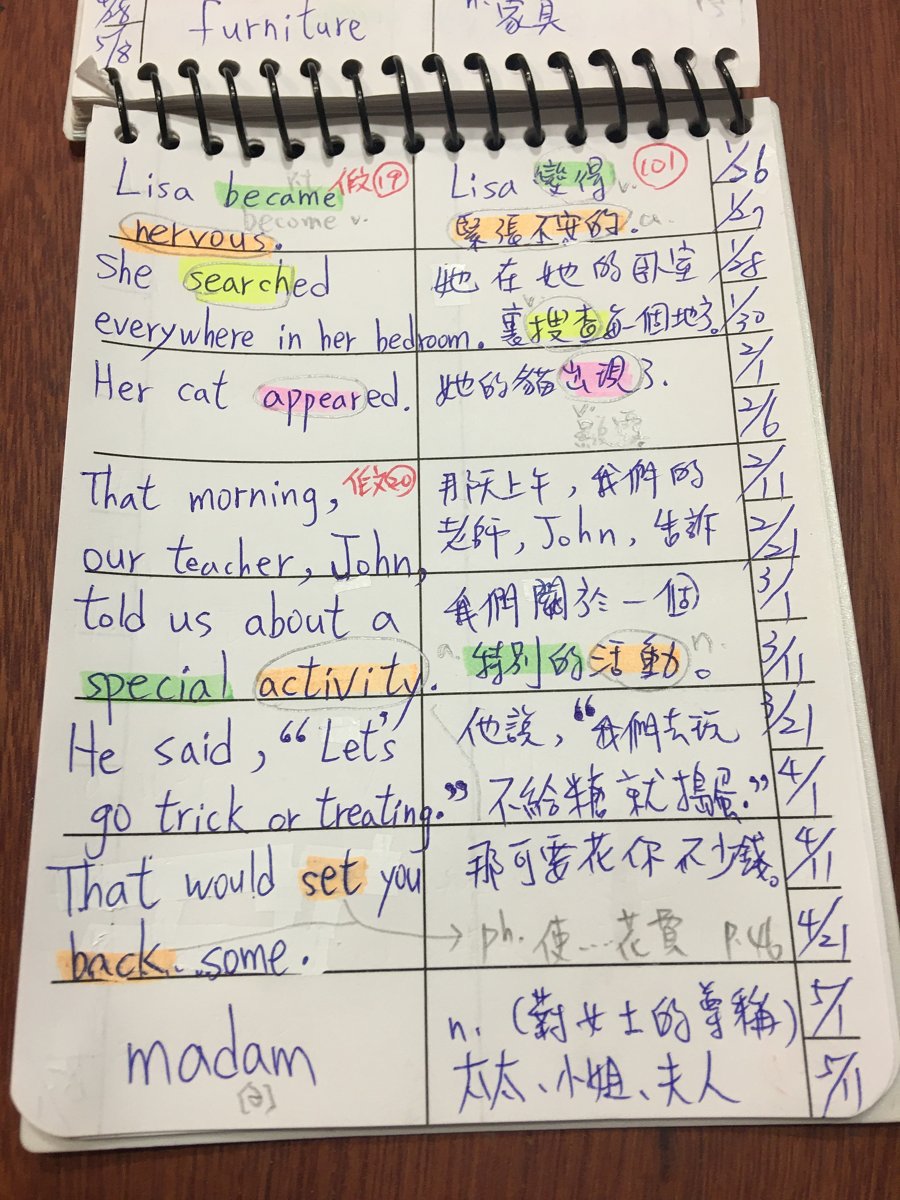 4/28
5/8
furniture
n. 家具
Lisa became
kt
作文 19
become v.
nervous.
Lisa 變得
v.
101
緊張不安的.
a.
1/26
1/27
She searched
everywhere in her bedroom.
她在她的卧室
v.
裏搜查每一個地方。
1/28
1/30
Her cat appeared.
她的貓出現了.
v.
顯露
2/1
2/6
That morning,
作文 20
our teacher, John,
told us about a
special activity.
那天上午，我們的
老師，John，告訴
我們關於一個
a. 特別的活動 n.。
2/11
2/21
3/1
3/11
He said, “Let's
go trick or treating.”
他說，“我們去玩
不給糖就搗蛋.”
3/21
4/1
That would set you
back some.
那可要花你不少錢。
ph. 使...花費 P.46
4/11
4/21
madam
[ə]
n. (對女士的尊稱)
太太、小姐、夫人
5/1
5/11